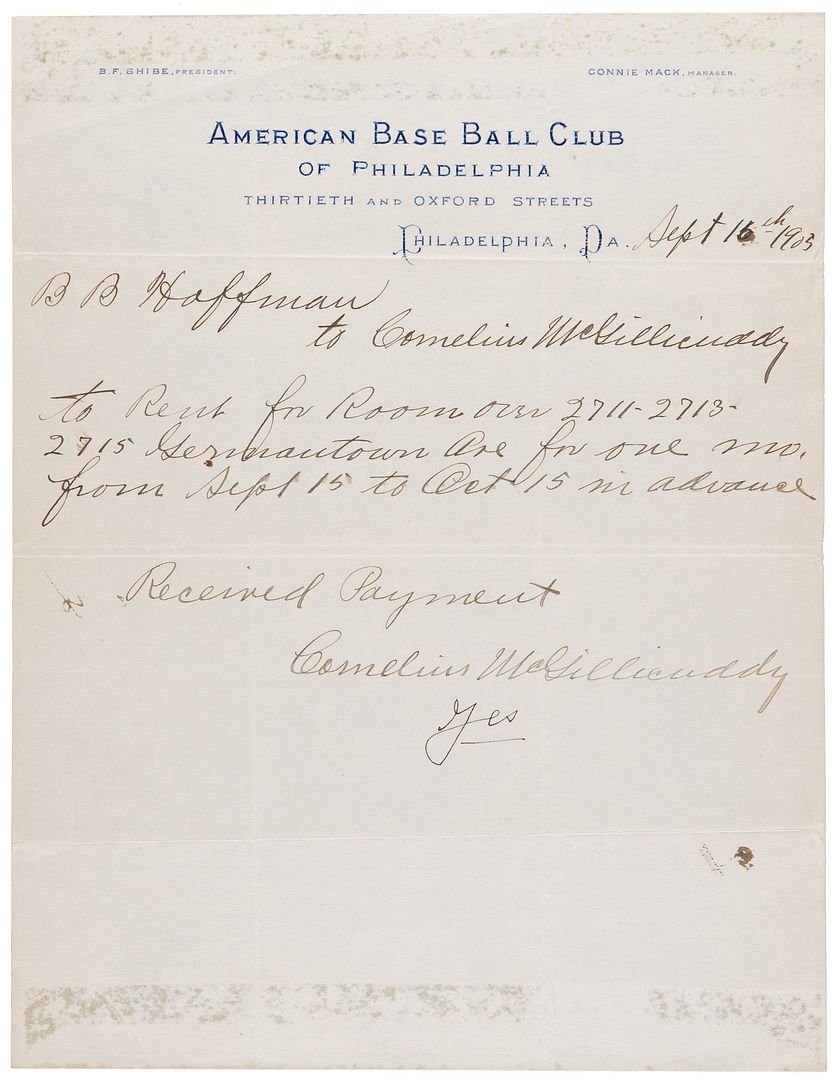 B.F. SHIBE, PRESIDENT.
CONNIE MACK, MANAGER.
AMERICAN BASE BALL CLUB
OF PHILADELPHIA
THIRTIETH AND OXFORD STREETS
PHILADELPHIA, PA. Sept 16th 1903
B B Hoffman
to Cornelius McGillicuddy
to Rent for Room over 2711-2713-
2715 Germantown Ave for one mo.
from Sept 15 to Oct 15 in advance
Received Payment
Cornelius McGillicuddy
Yes